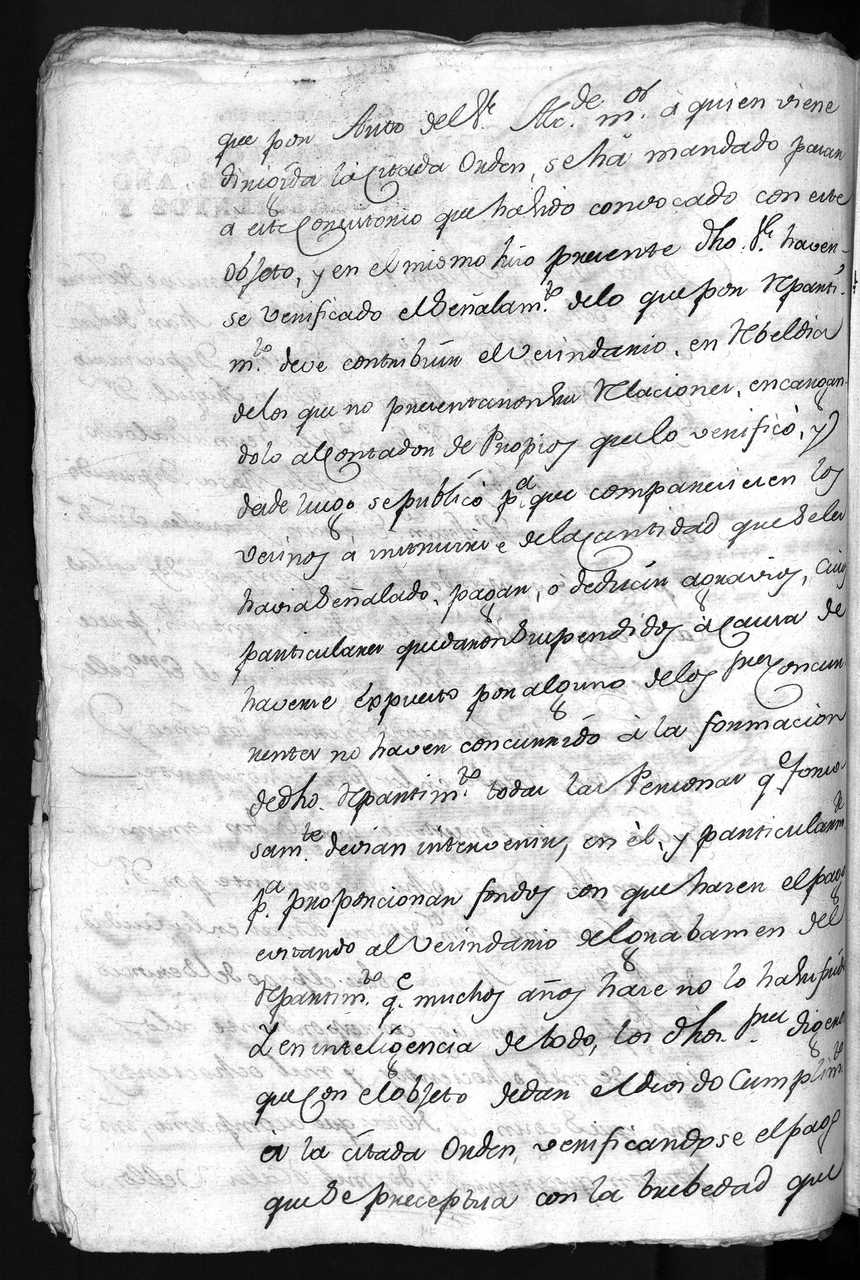 que por Auto del Sr. Alc.de m.or à quien viene
dirigida la Citada Orden, se hà mandado pasar
a este Consistorio que ha sido convocado con este
objeto, y en el mismo hizo presente dho. Sr. haver-
se verificado el señalam.to delo que por Reparti-
m.to deve contribuir el vecindario, en Rebeldia
delos que no presentaron sus Relaciones, encargan-
dolo al Contador de Propios que lo verificò, y
desde luego se publicó p.a que compareciesen los
vecinos a instruirse dela Cantidad que seles
havia señalado, pagar, o deducir agravios, cuios
particulares quedaron suspendidos à Causa de
haverse Expuesto por alguno delos Sres Concur-
rentes no haver concurrido à la formacion
dedho. Repartim.to todas las Personas q.e forzo
sam.te devian intervenir, en èl, y particularm.te
p.a proporcionar fondos con que hacer el pago
evitando al Vecindario del grabamen del
Repartim.to q.e muchos años hace no lo ha sufrido
Y en inteligencia de todo, los dhos. Sres digeron
que con el objeto de dar el devido Cumplim.to
a la citada Orden, verificandose el pago
que se preceptua con la brebedad que